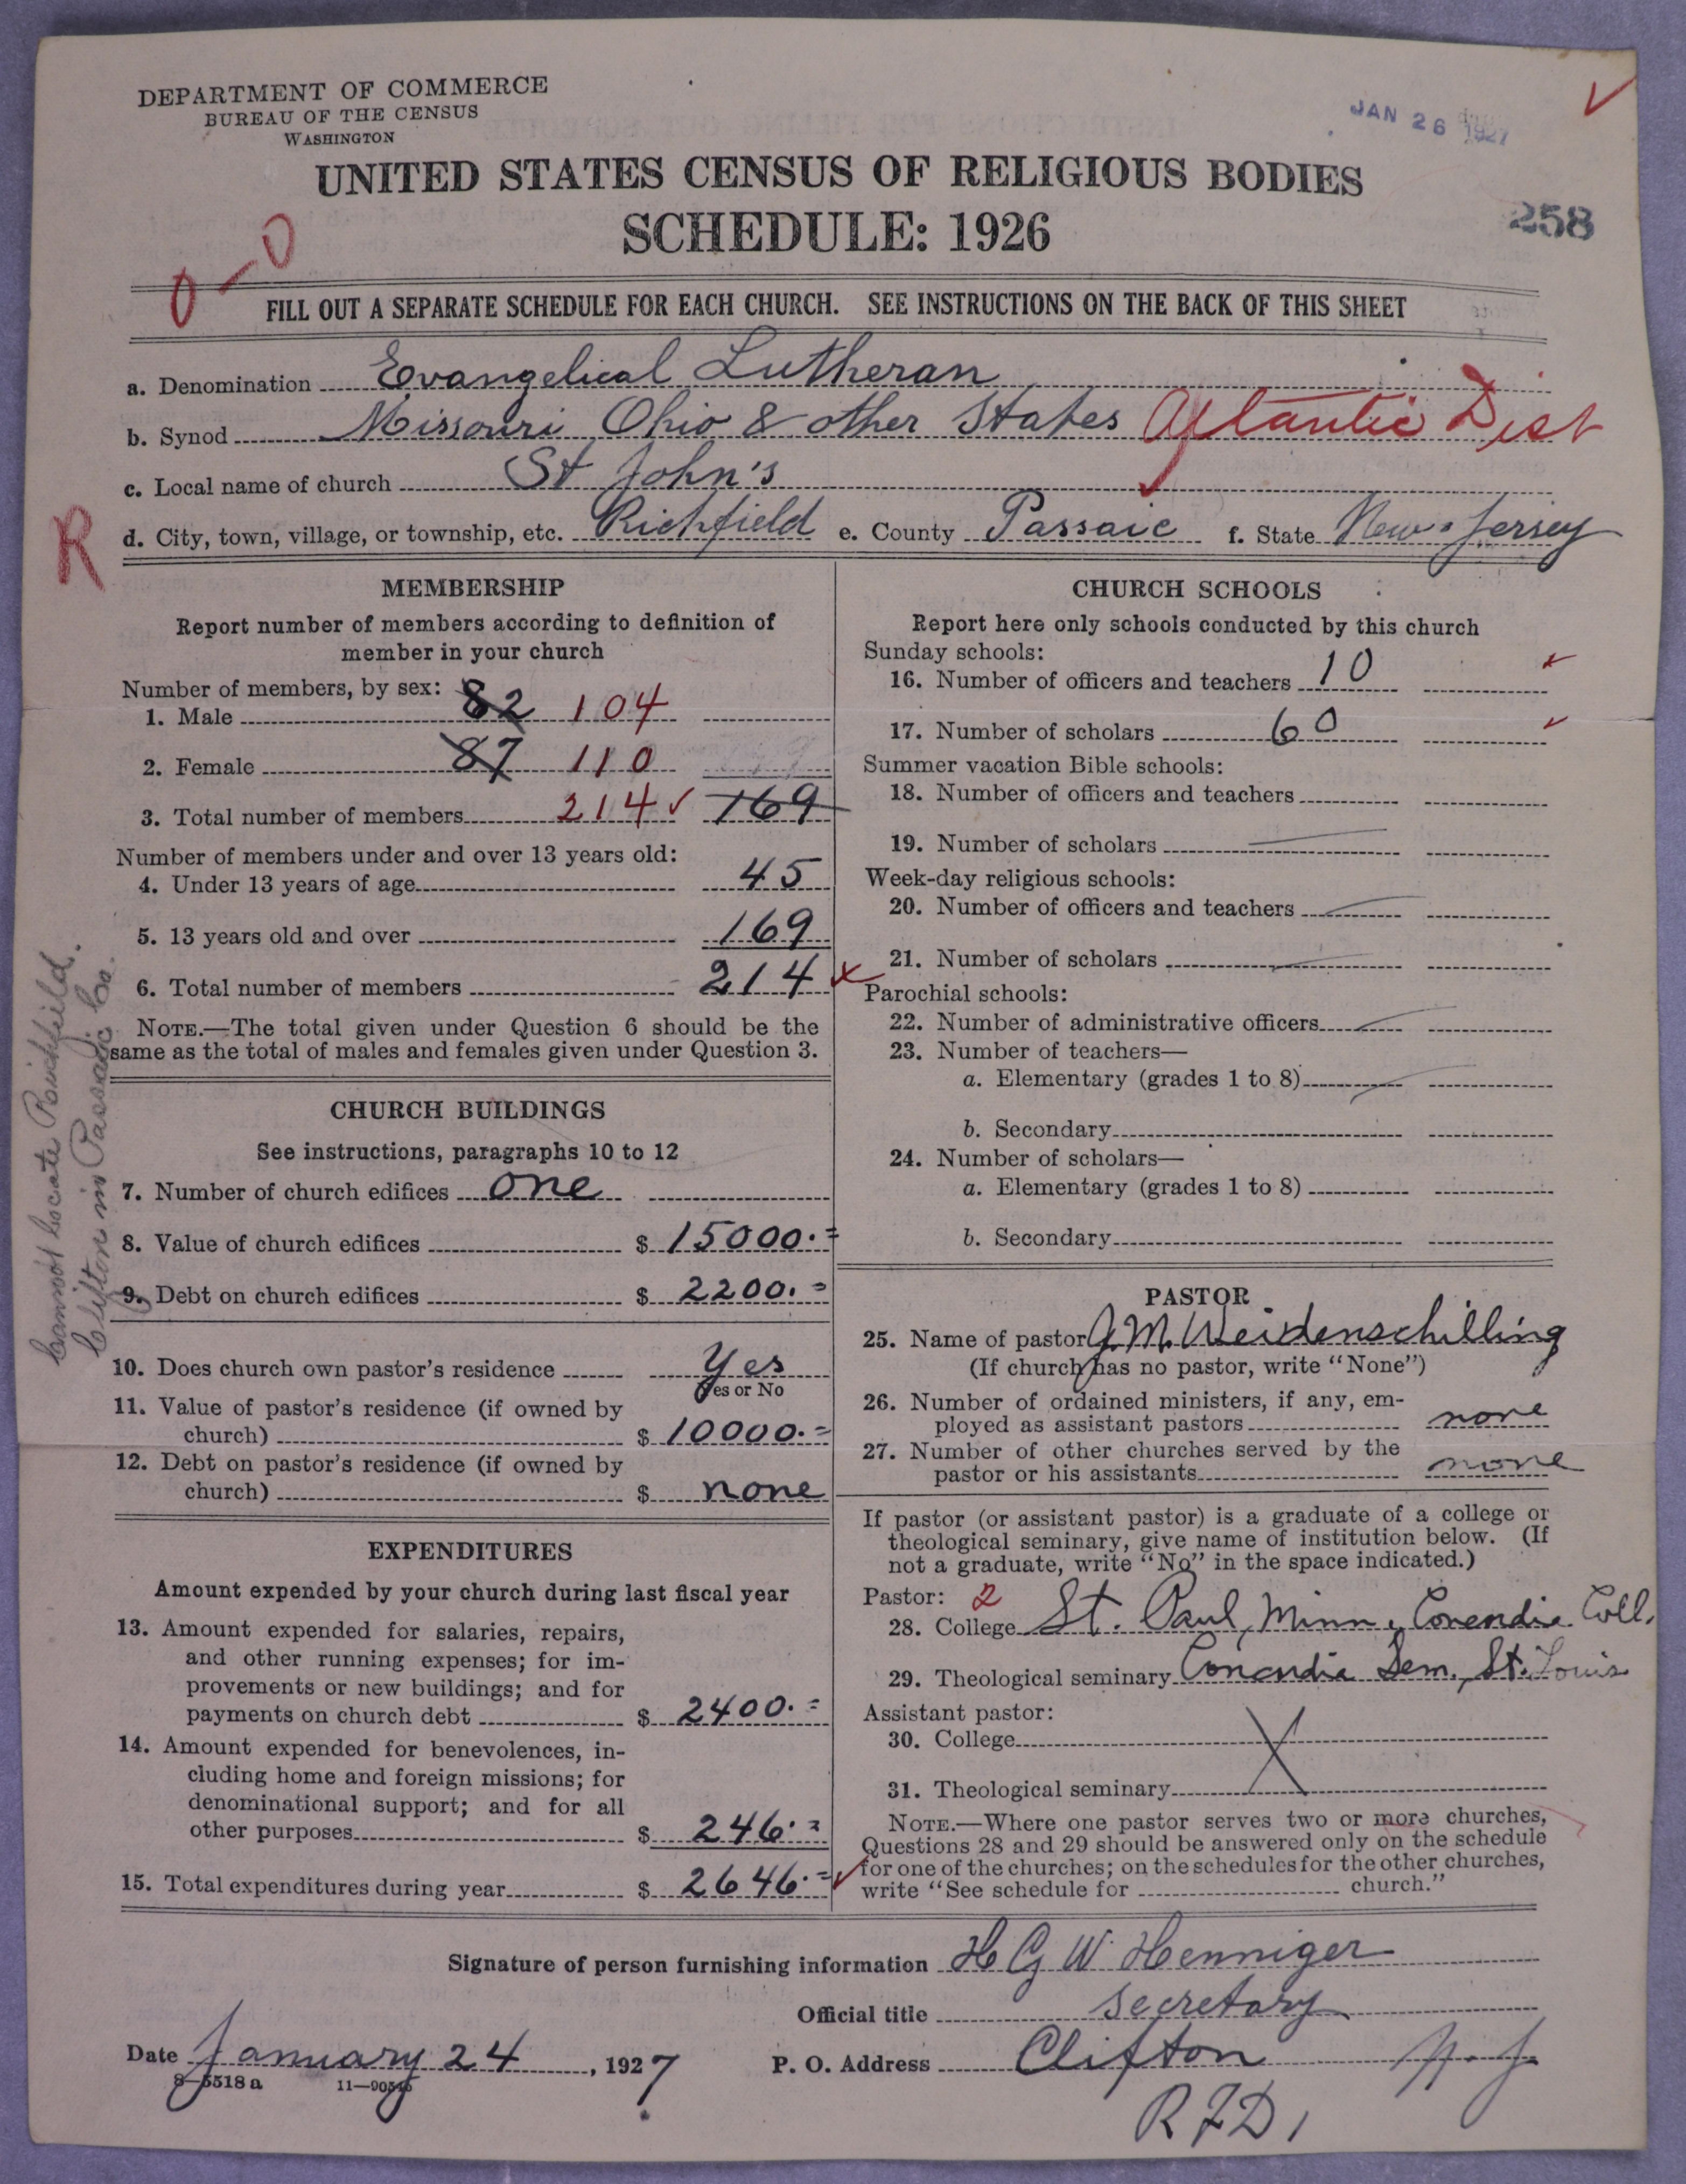 DEPARTMENT OF COMMERCE
BUREAU OF THE CENSUS
WASHINGTON
JAN 26 1927
UNITED STATES CENSUS OF RELIGIOUS BODIES
SCHEDULE: 1926
258
0-0
FILL OUT A SEPARATE SCHEDULE FOR EACH CHURCH. SEE INSTRUCTIONS ON THE BACK OF THIS SHEET
a. Denomination Evangelical Lutheran
b. Synod Missouri Ohio & other States Atlantic Dist
c. Local name of church St John's
R
d. City, town, village, or township, etc. Richfield e. County Passaic f. State New Jersey
MEMBERSHIP
Report number of members according to definition of
member in your church
Number of members, by sex:
1. Male 82 104
2. Female 87 110
3. Total number of members 214 169
Number of members under and over 13 years old:
4. Under 13 years of age 45
5. 13 years old and over 169
6. Total number of members 214
NOTE.—The total given under Question 6 should be the
same as the total of males and females given under Question 3.
Cannot locate Richfield.
Clifton in Passaic Co.
CHURCH BUILDINGS
See instructions, paragraphs 10 to 12
7. Number of church edifices one
8. Value of church edifices $ 15000.=
9. Debt on church edifices $ 2200.=
10. Does church own pastor's residence Yes
Yes or No
11. Value of pastor's residence (if owned by
church) $ 10000.=
12. Debt on pastor's residence (if owned by
church) $ none
EXPENDITURES
Amount expended by your church during last fiscal year
13. Amount expended for salaries, repairs,
and other running expenses; for im-
provements or new buildings; and for
payments on church debt $ 2400.=
14. Amount expended for benevolences, in-
cluding home and foreign missions; for
denominational support; and for all
other purposes $ 246.=
15. Total expenditures during year $ 2646.=
CHURCH SCHOOLS
Report here only schools conducted by this church
Sunday schools:
16. Number of officers and teachers 10
17. Number of scholars 60
Summer vacation Bible schools:
18. Number of officers and teachers
19. Number of scholars
Week-day religious schools:
20. Number of officers and teachers
21. Number of scholars
Parochial schools:
22. Number of administrative officers
23. Number of teachers—
a. Elementary (grades 1 to 8)
b. Secondary
24. Number of scholars—
a. Elementary (grades 1 to 8)
b. Secondary
PASTOR
25. Name of pastor J. M. Weidenschilling
(If church has no pastor, write "None")
26. Number of ordained ministers, if any, em-
ployed as assistant pastors none
27. Number of other churches served by the
pastor or his assistants none
If pastor (or assistant pastor) is a graduate of a college or
theological seminary, give name of institution below. (If
not a graduate, write "No" in the space indicated.)
Pastor: 2
28. College St. Paul, Minn, Concordia Coll.
29. Theological seminary Concordia Sem., St. Louis
Assistant pastor:
30. College
31. Theological seminary
NOTE.—Where one pastor serves two or more churches,
Questions 28 and 29 should be answered only on the schedule
for one of the churches; on the schedules for the other churches,
write "See schedule for church."
Signature of person furnishing information H G W Henniger
Official title secretary
Date January 24, 1927 P. O. Address Clifton N. J.
8—5518 a
RFD 1